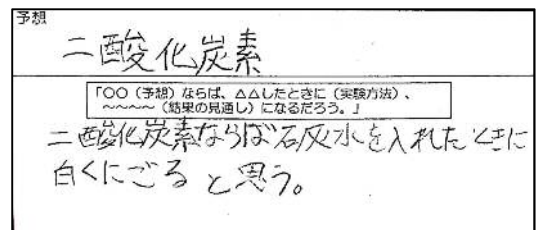 予想
二酸化炭素
「○○（予想）ならば、△△したときに（実験方法）、
～～～～（結果の見通し）になるだろう。」
二酸化炭素ならば石灰水を入れたときに
白くにごると思う。